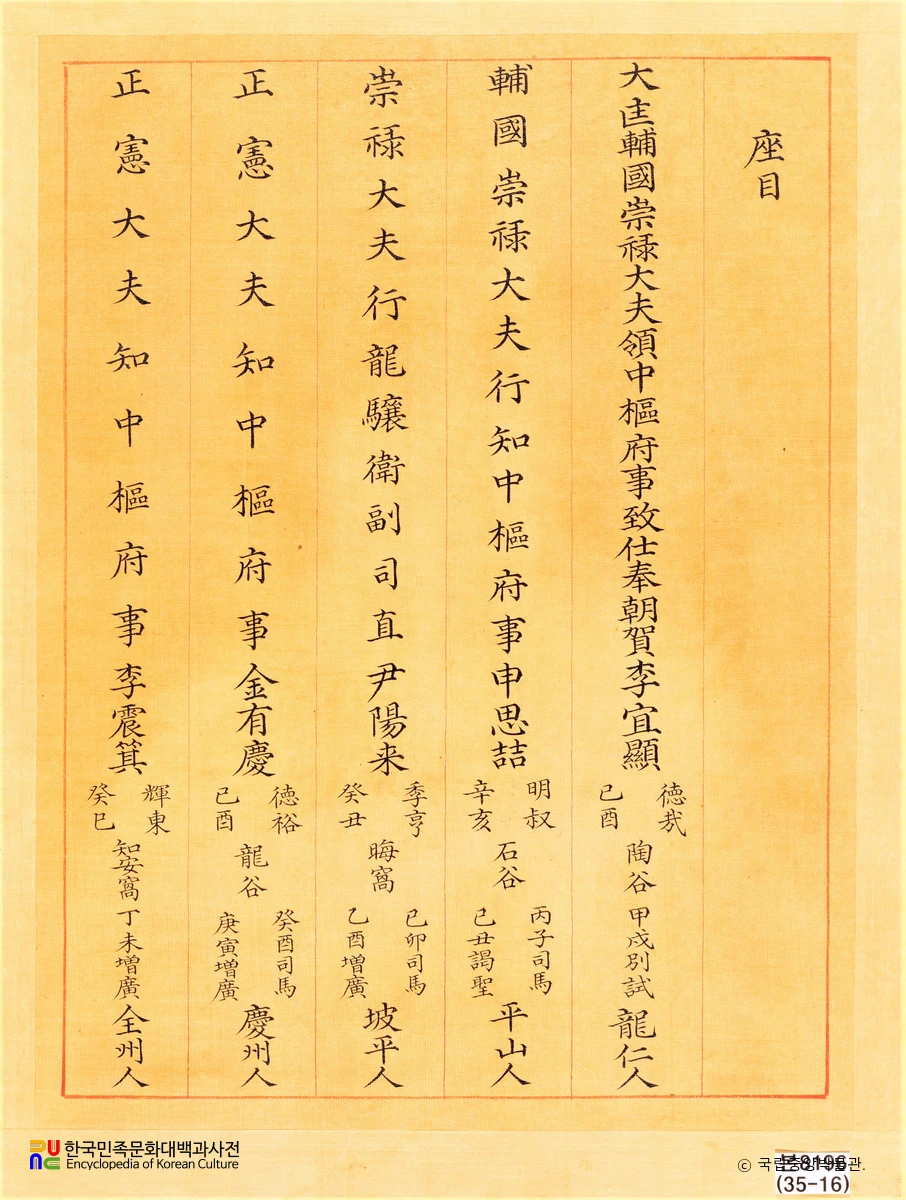 座目
大匡輔國崇祿大夫領中樞府事致仕奉朝賀李宜顯 德哉 己酉 陶谷 甲戌別試 龍仁人
輔國崇祿大夫行知中樞府事申思喆 明叔 辛亥 石谷 丙子司馬 己丑謁聖 平山人
崇祿大夫行龍驤衛副司直尹陽来 季亨 癸丑 晦窩 己卯司馬 乙酉增廣 坡平人
正憲大夫知中樞府事金有慶 德裕 己酉 龍谷 癸酉司馬 庚寅增廣 慶州人
正憲大夫知中樞府事李震箕 輝東 癸巳 知安窩 丁未增廣 全州人
한국민족문화대백과사전
Encyclopedia of Korean Culture
© 국립중앙박물관.
(35-16)